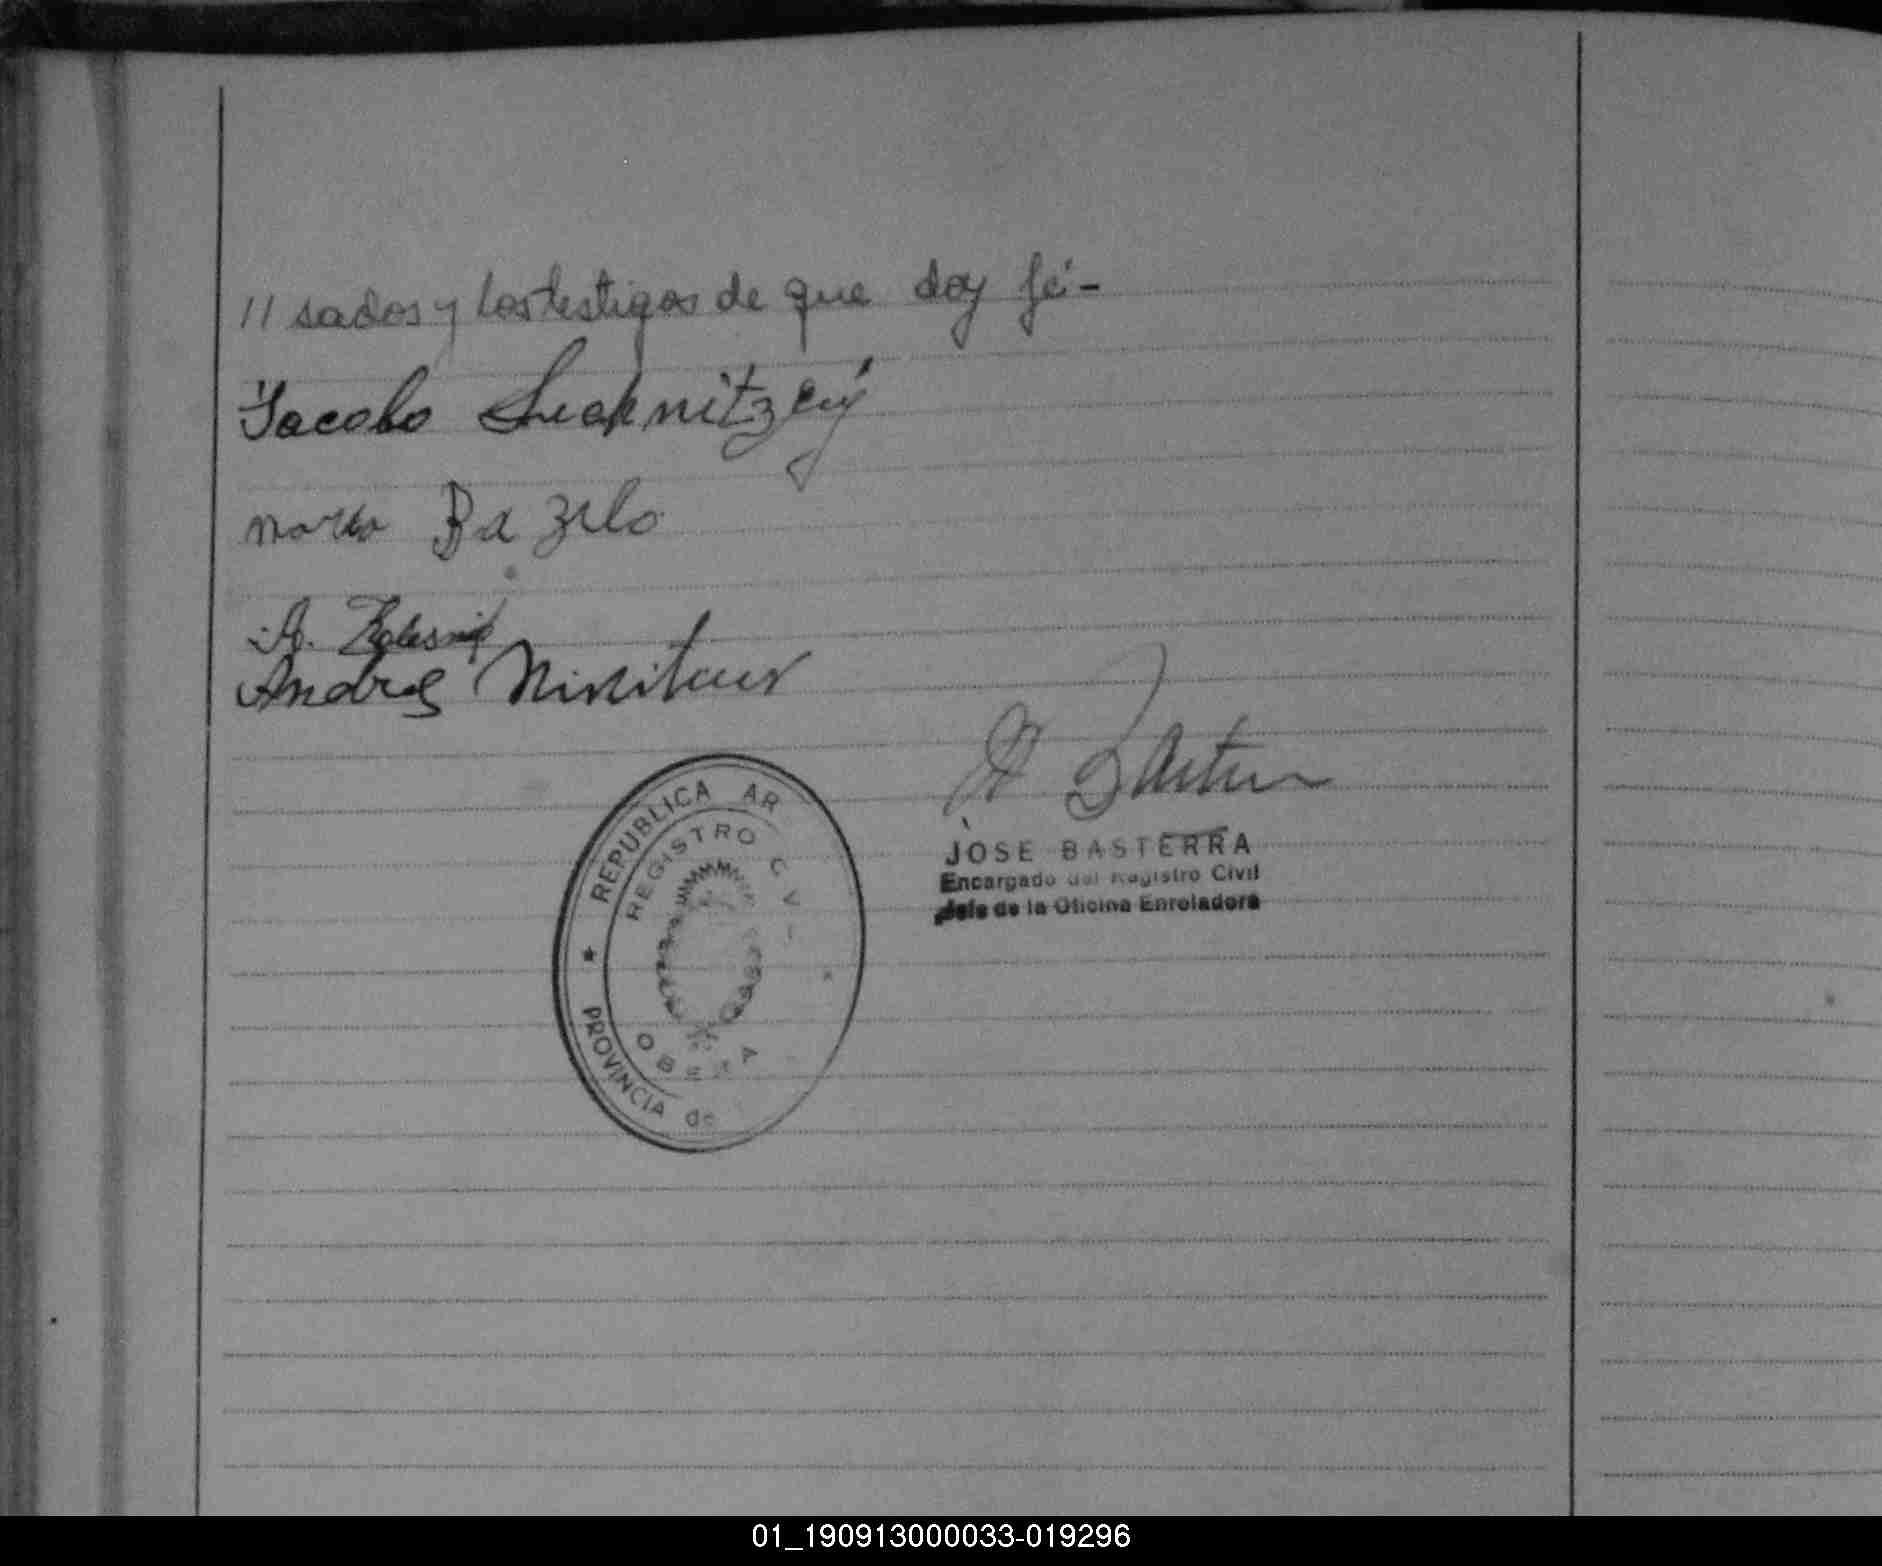 // sados y los testigos de que doy fé-
Jacobo
Bazilo
A.
Andres
JOSE BASTERRA
Encargado del Registro Civil
Jefe de la Oficina Enroladora
REPUBLICA AR
REGISTRO CIVIL
OBERA
PROVINCIA de
01_190913000033-019296